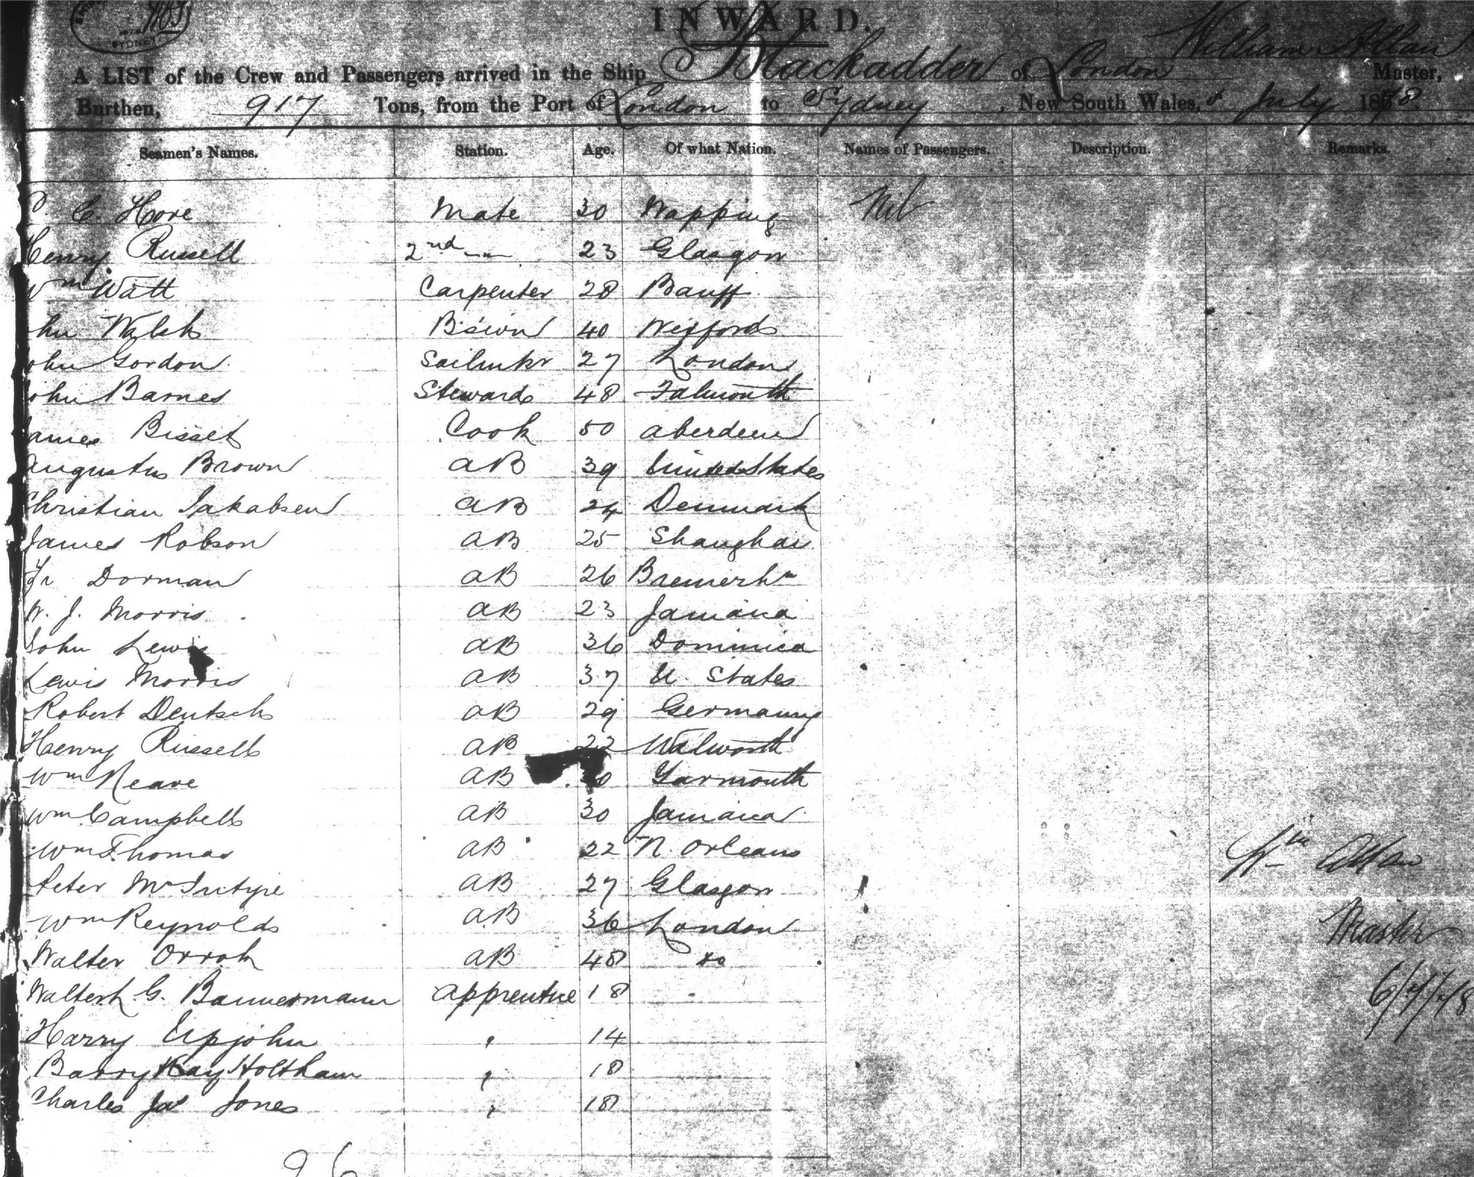 SYDNEY
INWARD.
A LIST of the Crew and Passengers arrived in the Ship Blackadder of London William Allan Master,
Burthen, 917 Tons, from the Port of London to Sydney, New South Wales, July 1878
Seamen's Names. Station. Age. Of what Nation. Names of Passengers. Description. Remarks.
C. Hore Mate 30 Wapping Nil
Henry Russell 2nd " 23 Glasgow
Wm Watt Carpenter 28 Banff
John Walsh Bs'wn 40 Wexford
John Gordon Sailmkr 27 London
John Barnes Steward 48 Falmouth
James Bisset Cook 50 Aberdeen
Augustus Brown AB 39 United States
Christian Jakobsen AB 24 Denmark
James Robson AB 25 Shanghai
Fr Dorman AB 26 Bremerhn
W. J. Morris AB 23 Jamaica
John Lewis AB 36 Dominica
Lewis Morris AB 37 U. States
Robert Deutsch AB 29 Germany
Henry Russell AB 22 Walworth
Wm Neave AB Yarmouth
Wm Campbell AB 30 Jamaica
Wm Thomas AB 22 N. Orleans Wm Allan
Peter McIntyre AB 27 Glasgow
Wm Reynolds AB 36 London Master
Walter Orrok AB 48 do
Walter G. Bannermann Apprentice 18 6/7/78
Harry Upjohn " 14
Barry Kay Holtham " 18
Charles Jas Jones " 18
26